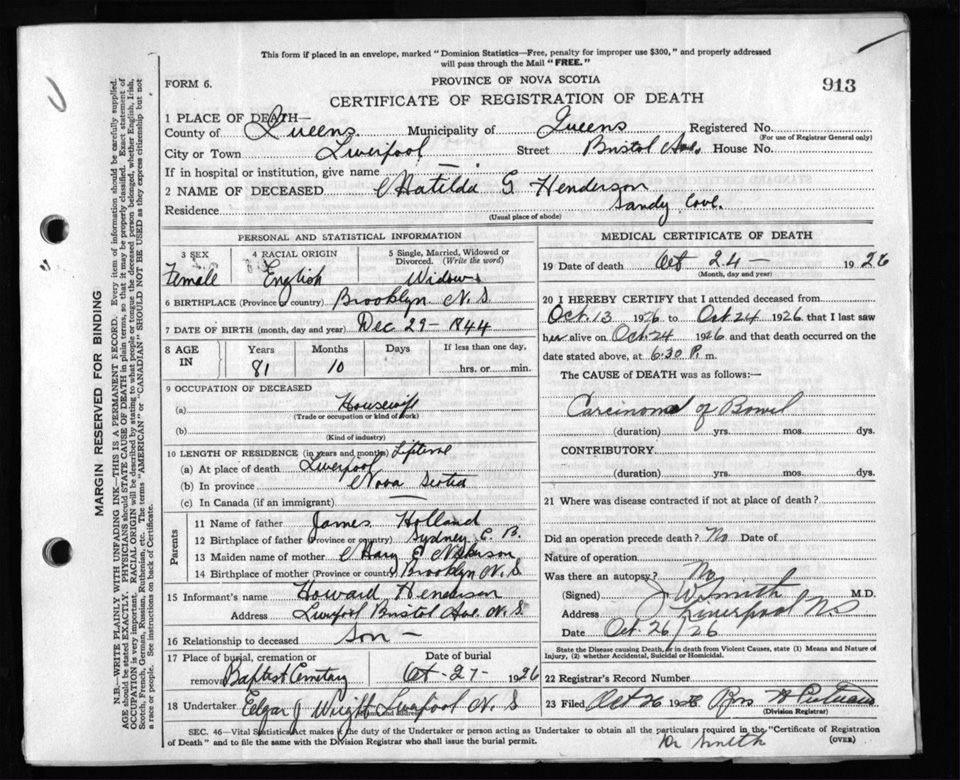 This form if placed in an envelope, marked "Dominion Statistics—Free, penalty for improper use $300," and properly addressed
will pass through the Mail "FREE."
FORM 6.
PROVINCE OF NOVA SCOTIA
913
CERTIFICATE OF REGISTRATION OF DEATH
1 PLACE OF DEATH—
County of Queens Municipality of Queens Registered No.
(For use of Registrar General only)
City or Town Liverpool Street Bristol Ave. House No.
If in hospital or institution, give name —
2 NAME OF DECEASED Matilda G Henderson
Residence Sandy Cove.
(Usual place of abode)
MARGIN RESERVED FOR BINDING
N.B.—WRITE PLAINLY WITH UNFADING INK—THIS IS A PERMANENT RECORD. Every item of information should be carefully supplied.
AGE should be stated EXACTLY. PHYSICIANS should STATE CAUSE OF DEATH in plain terms, so that it may be properly classified. Exact statement of
OCCUPATION is very important. RACIAL ORIGIN will be described by stating to what people or tongue the deceased person belonged, whether English, Irish,
Scotch, French, German, Russian, Ruthenian, etc. The terms "AMERICAN" or "CANADIAN" SHOULD NOT BE USED as they express citizenship but not
a race or people. See instructions on back of Certificate.
PERSONAL AND STATISTICAL INFORMATION
3 SEX 4 RACIAL ORIGIN 5 Single, Married, Widowed or
Divorced. (Write the word)
Female English Widow
6 BIRTHPLACE (Province or country) Brooklyn N. S.
7 DATE OF BIRTH (month, day and year) Dec 29 - 1844
8 AGE IN Years Months Days If less than one day,
81 10 hrs. or min.
9 OCCUPATION OF DECEASED
(a) Housewife
(Trade or occupation or kind of work)
(b)
(Kind of industry)
10 LENGTH OF RESIDENCE (in years and months) Lifetime
(a) At place of death Liverpool
(b) In province Nova Scotia
(c) In Canada (if an immigrant) —
Parents
11 Name of father James Holland
12 Birthplace of father (Province or country) Sydney C. B.
13 Maiden name of mother Mary E Nickerson
14 Birthplace of mother (Province or country) Brooklyn N. S
15 Informant's name Howard Henderson
Address Liverpool Bristol Ave. N. S.
16 Relationship to deceased Son —
17 Place of burial, cremation or Date of burial
removal Baptist Cemetary Oct - 27 - 1926
18 Undertaker Edgar J Wright Liverpool N. S
MEDICAL CERTIFICATE OF DEATH
19 Date of death Oct 24 — 1926
(Month, day and year)
20 I HEREBY CERTIFY that I attended deceased from
Oct. 13 1926 to Oct 24 1926 that I last saw
her alive on Oct. 24 1926 and that death occurred on the
date stated above, at 6.30 P. m.
The CAUSE of DEATH was as follows:—
Carcinoma of Bowel
(duration) yrs. mos. dys.
CONTRIBUTORY
(duration) yrs. mos. dys.
21 Where was disease contracted if not at place of death?
Did an operation precede death? No Date of
Nature of operation
Was there an autopsy? No
(Signed) J W Smith M.D.
Address Liverpool N.S
Date Oct. 26/26
State the Disease causing Death, or in death from Violent Causes, state (1) Means and Nature of
Injury, (2) whether Accidental, Suicidal or Homicidal.
22 Registrar's Record Number
23 Filed Oct 26 1926
(Division Registrar)
SEC. 46—Vital Statistics Act makes it the duty of the Undertaker or person acting as Undertaker to obtain all the particulars required in the "Certificate of Registration
of Death" and to file the same with the Division Registrar who shall issue the burial permit.
(OVER)
Dr Smith